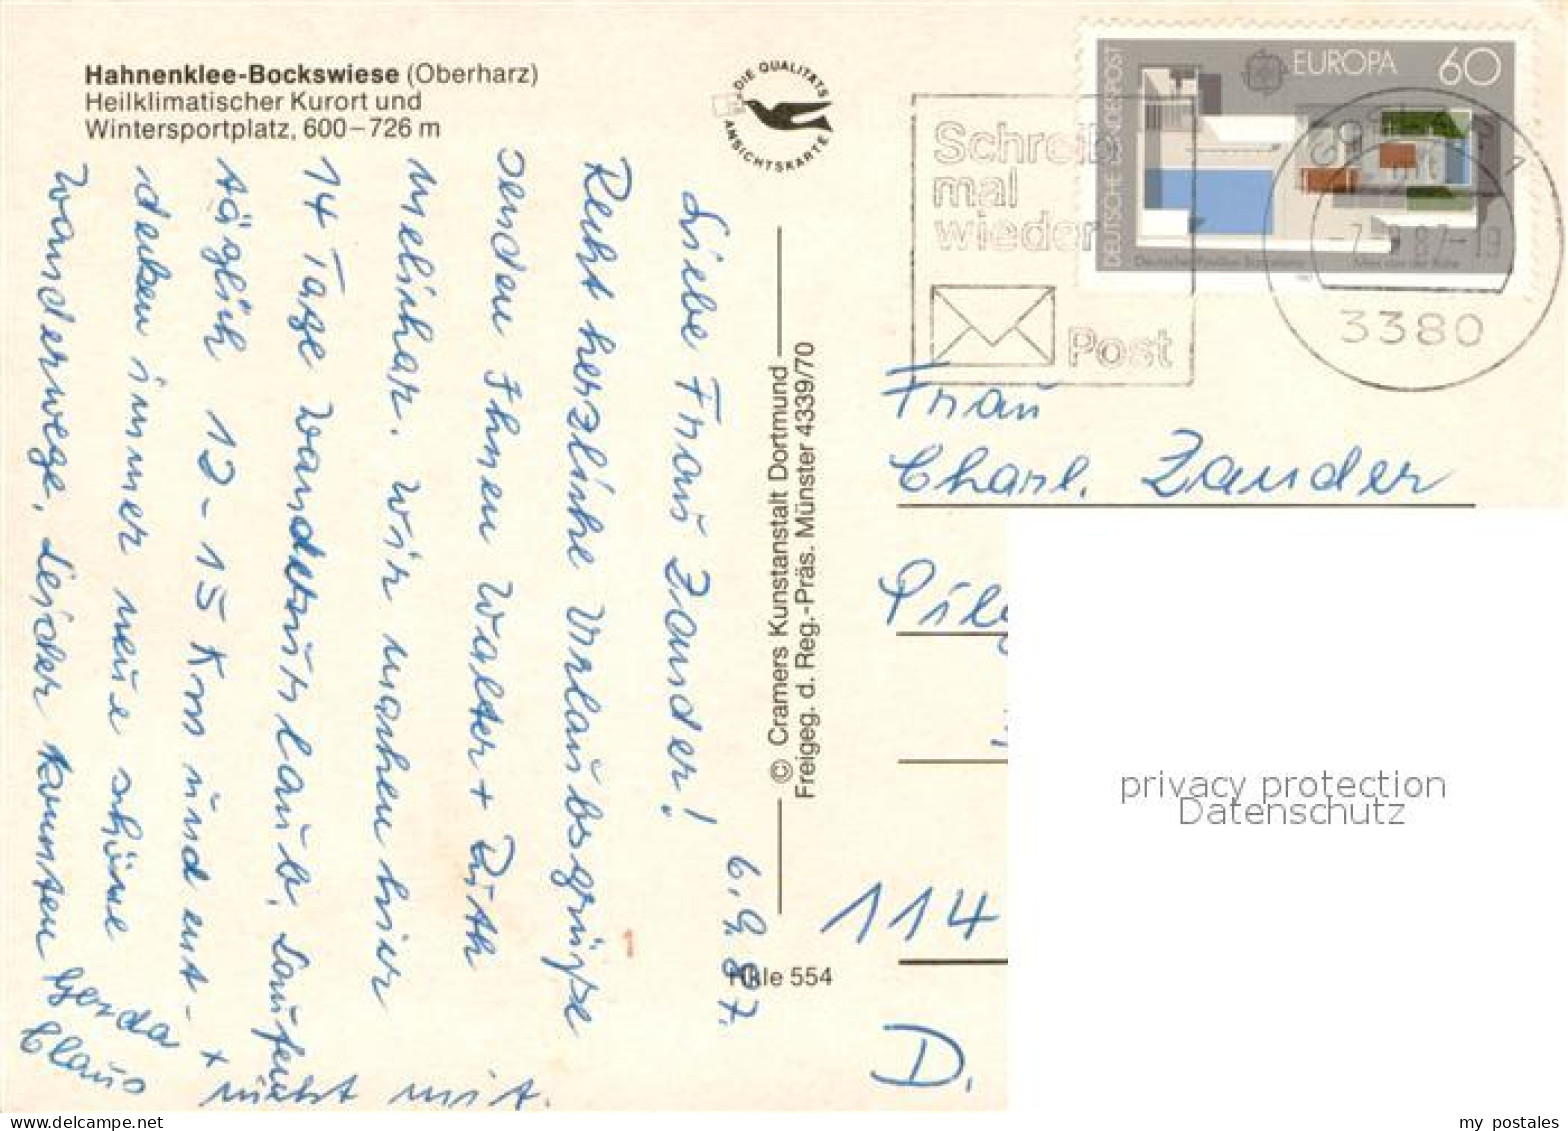 Hahnenklee-Bockswiese (Oberharz)
Heilklimatischer Kurort und
Wintersportplatz, 600–726 m
DIE QUALITÄTS
ANSICHTSKARTE
6.9.87.
Liebe Frau Zander!
Recht herzliche Urlaubsgrüße
senden Ihnen Walter + Ruth
Melinkar. Wir machen hier
14 Tage Wanderurlaub. Laufen
täglich 12-15 Km und ent-
decken immer neue schöne
Wanderwege. Leider konnten
Gerda +
Claus
nicht mit.
© Cramers Kunstanstalt Dortmund
Freigeg. d. Reg.-Präs. Münster 4339/70
Hkle 554
Schreib
mal
wieder
Post
DEUTSCHE BUNDESPOST
EUROPA 60
3380
Frau
Charl. Zander
114
D.
privacy protection
Datenschutz
my_postales